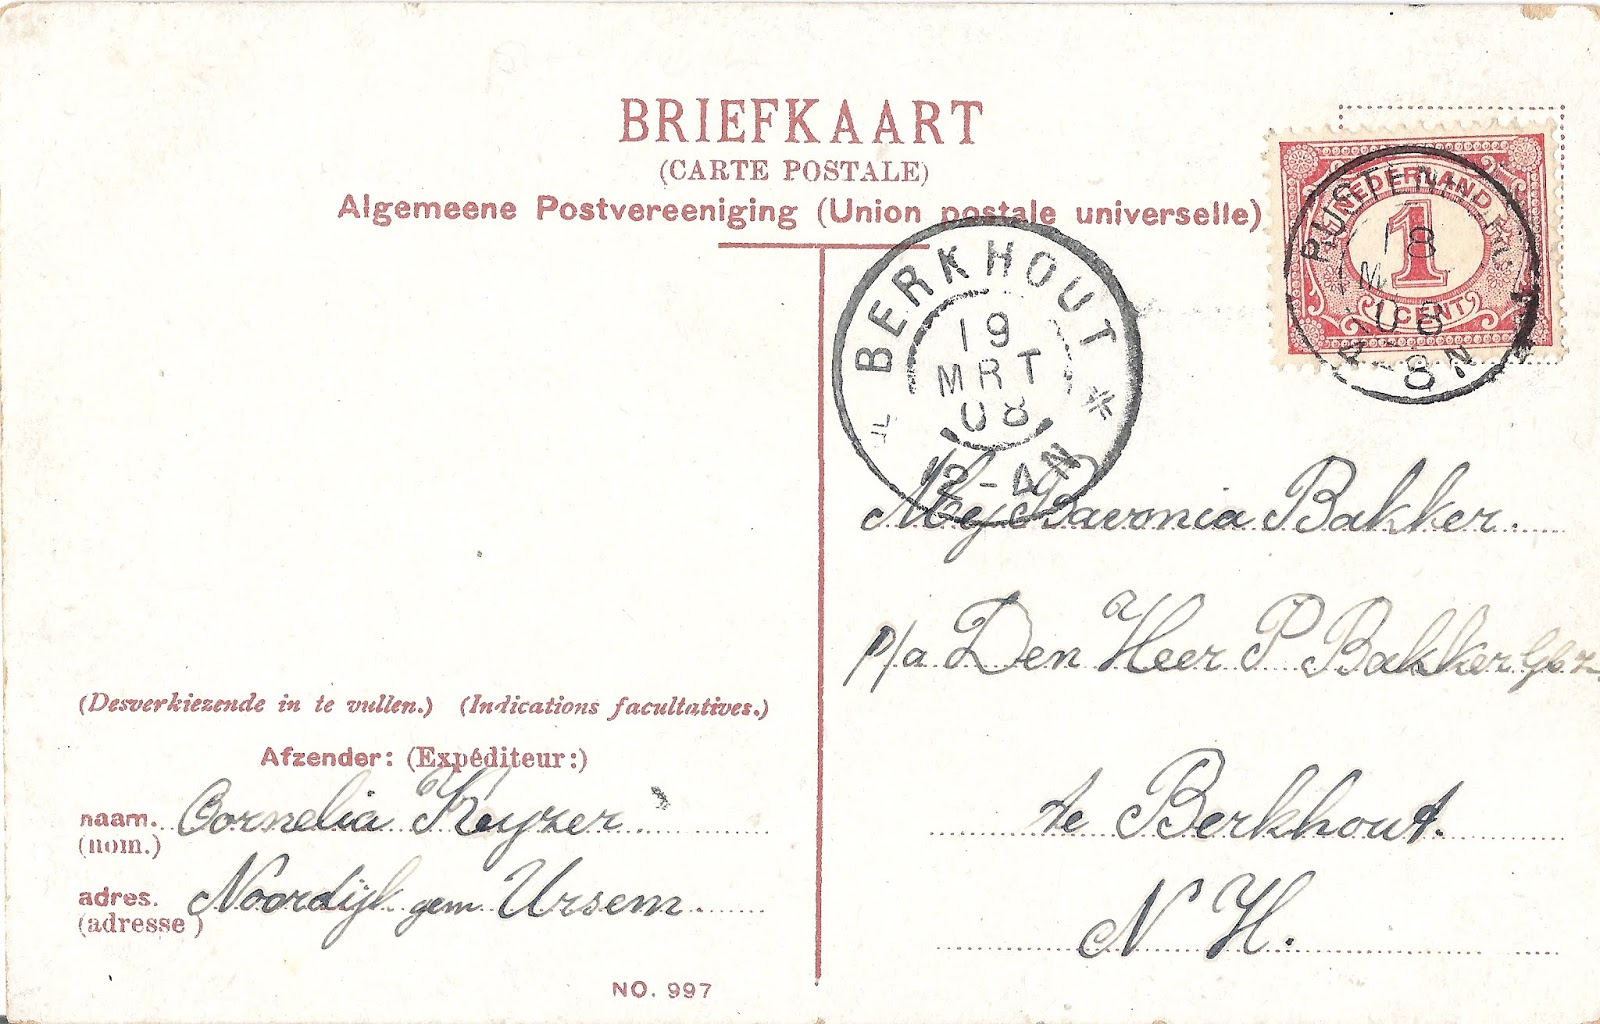 BRIEFKAART
(CARTE POSTALE)
Algemeene Postvereeniging (Union postale universelle)
NEDERLAND
1
1 CENT
RUSTENB
18
M
08
8 N
BERKHOUT
19
MRT
08
12-4N
Mej Bavonia Bakker.
p/a Den Heer P Bakker Gbz
te Berkhout.
N H.
(Desverkiezende in te vullen.) (Indications facultatives.)
Afzender: (Expéditeur:)
naam. Cornelia Keyzer
(nom.)
adres. Noordijk gem Ursem.
(adresse)
NO. 997